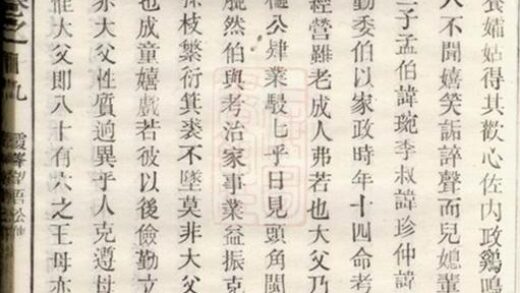 養孀姑得其歡心佐内政鷄鳴
人不聞嬉笑詬誶聲而兒媳輩
三子孟伯諱琬季叔諱珍仲諱
勤委伯以家政時年十四命考
經營雖老成人弗若也大父乃
極公肄業駸七乎日見頭角開
態然伯與考治家事業益振克
孫枝繁衍箕裘不墜莫非大父
也成童嬉戲若彼以後儉勤立
亦大父性質逈異乎人克遵母
惟大父即八十有六之王母亦